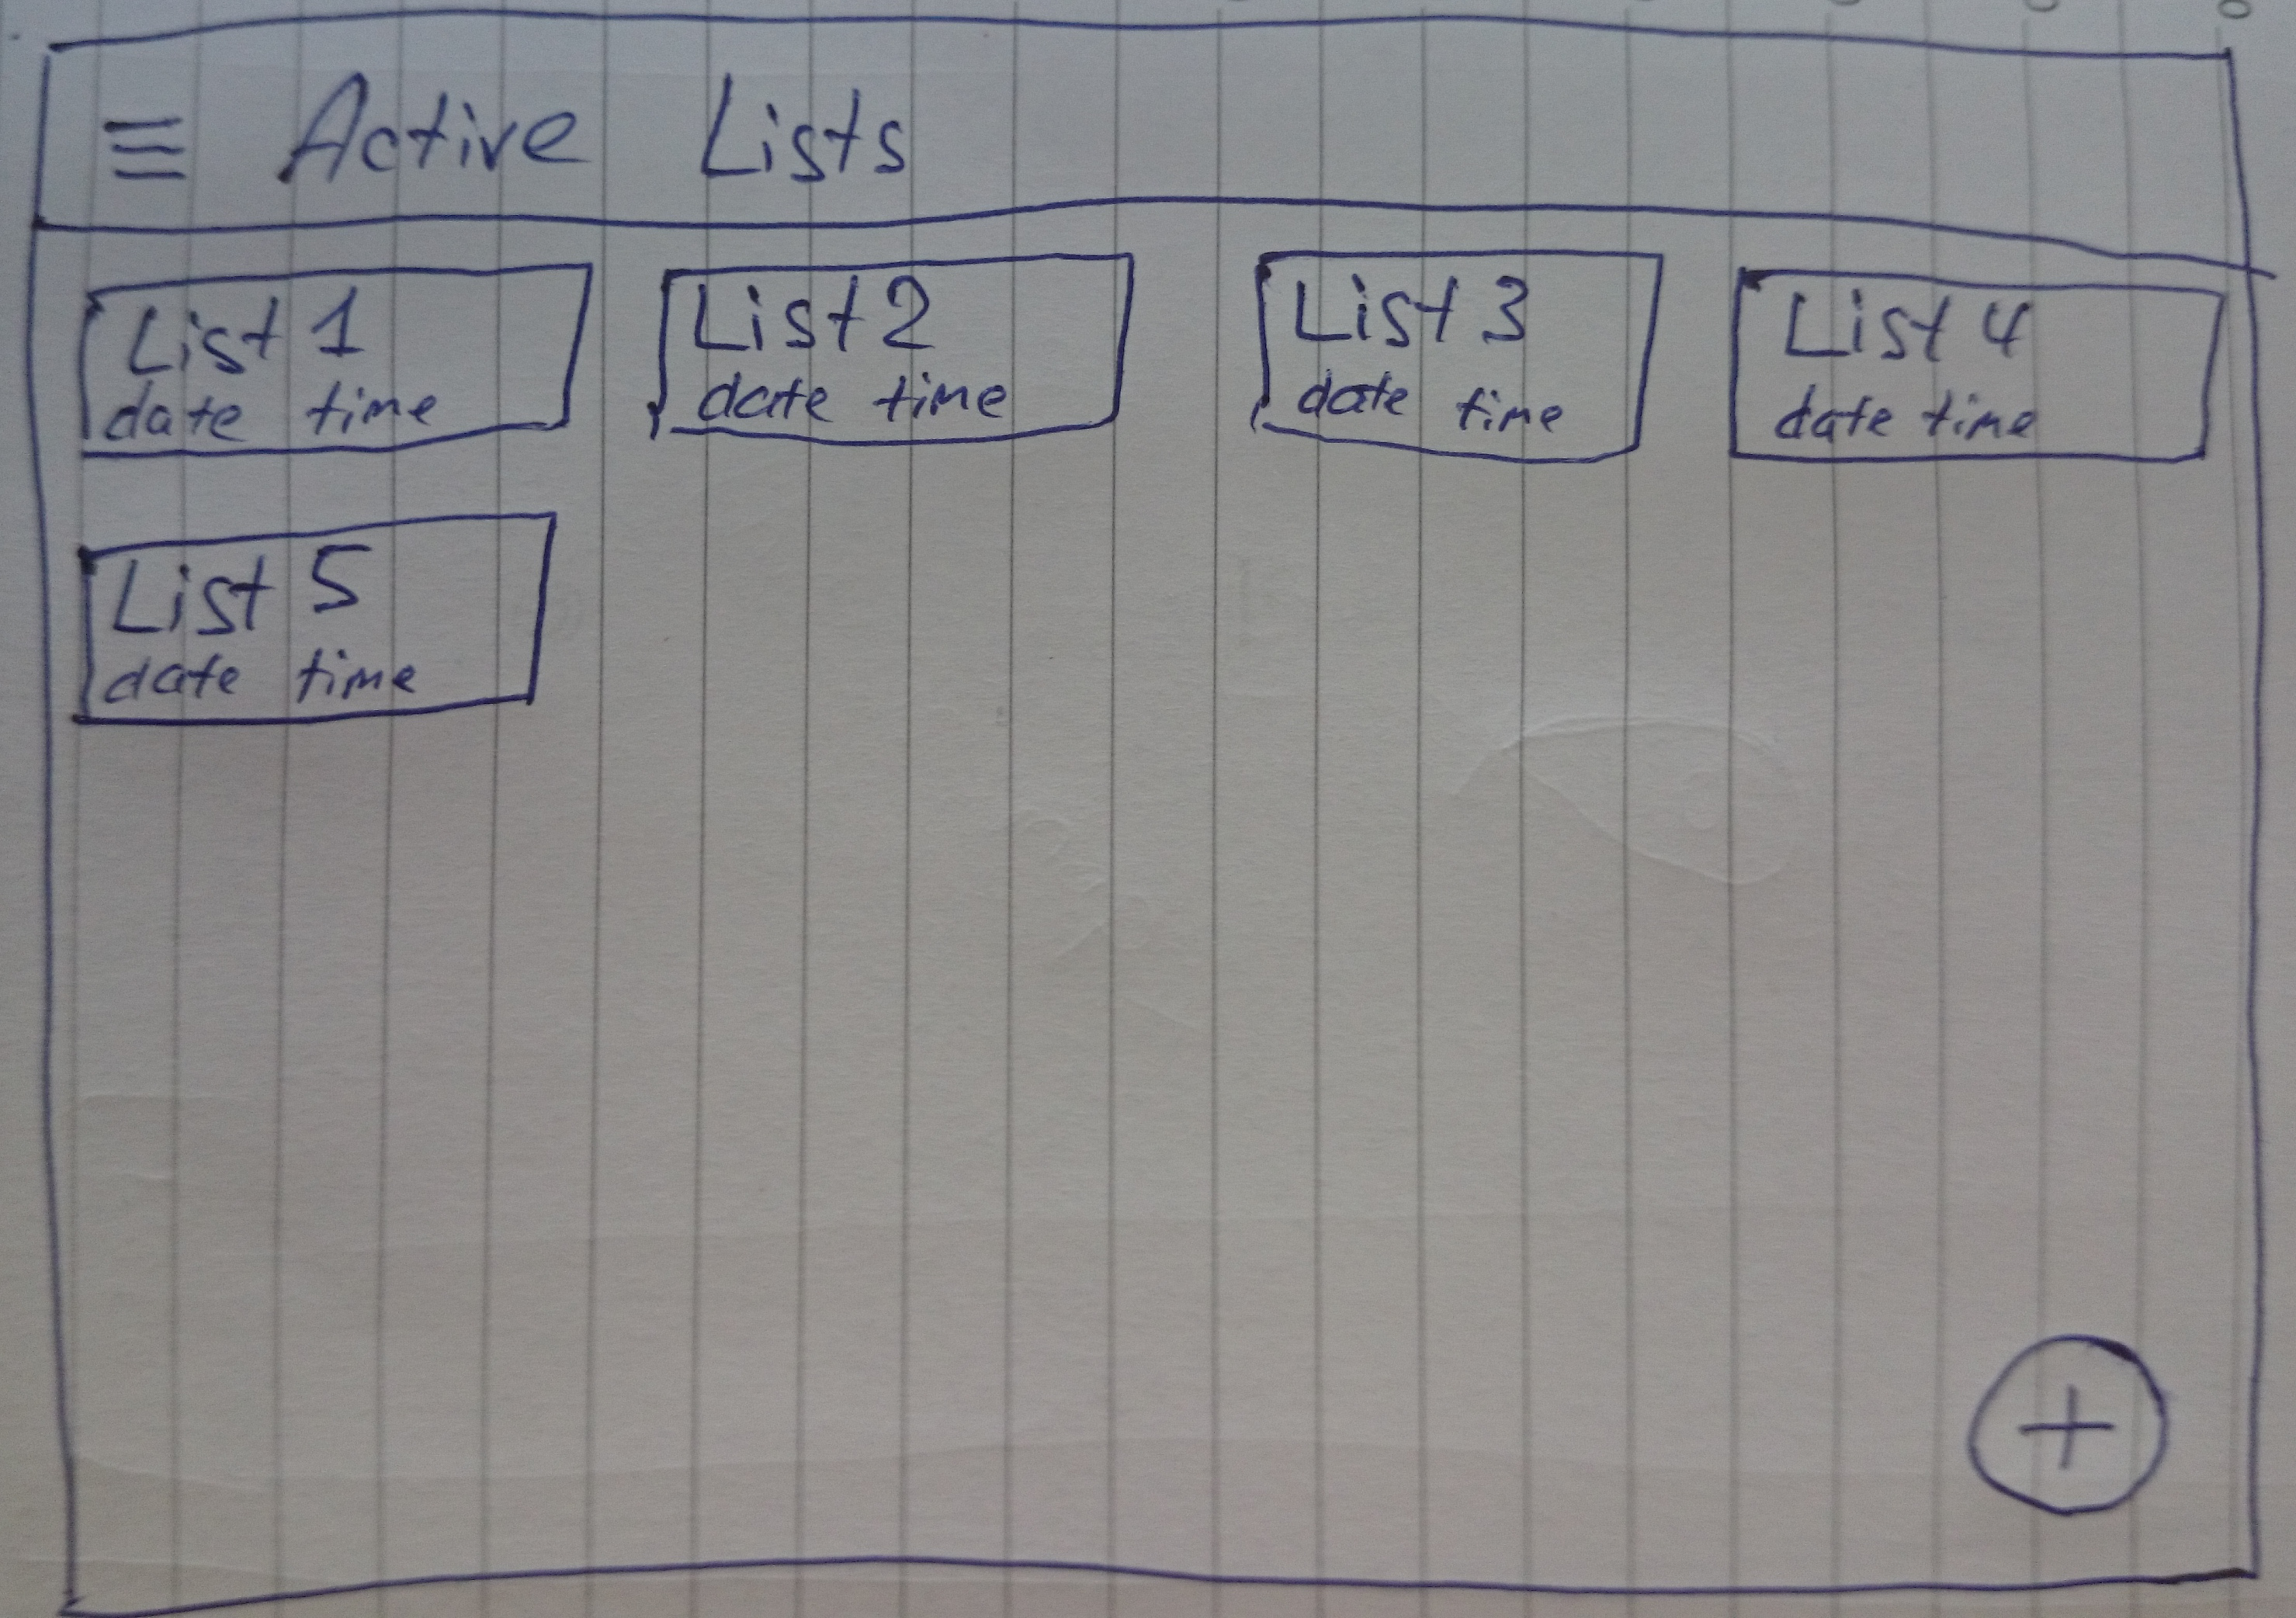 ≡ Active Lists
List 1
date time
List 2
date time
List 3
date time
List 4
date time
List 5
date time
+